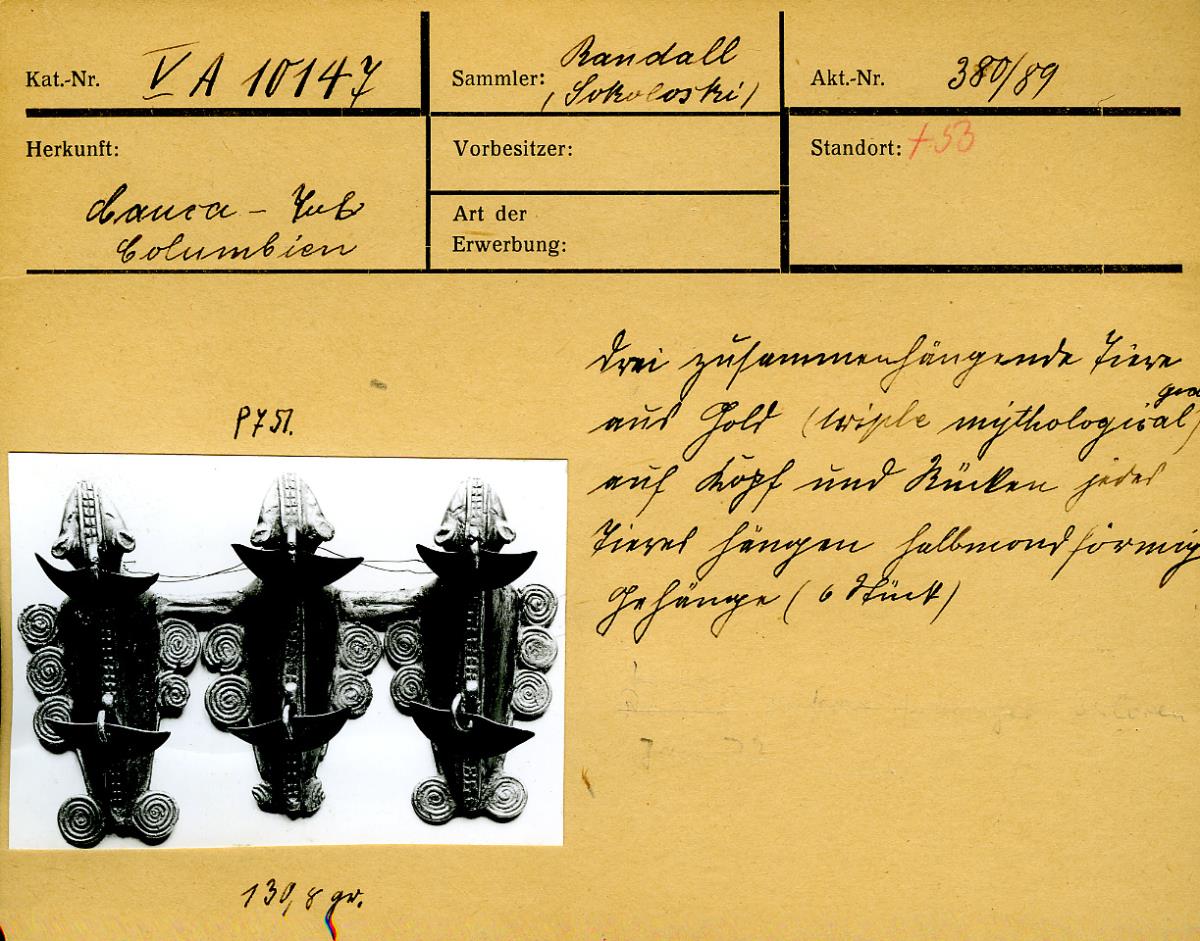 Kat.-Nr. V A 10147
Sammler: Randall
(Sokoloski)
Akt.-Nr. 380/89
Herkunft:
Cauca - Tal
Columbien
Vorbesitzer:
Art der
Erwerbung:
Standort: + 53
P 7 51.
Drei zusammenhängende Tiere
aus Gold (triple mythological
auf Kopf und Rücken jedes
Tieres hängen halbmondförmige
Gehänge (6 Stück)
130,8 gr.